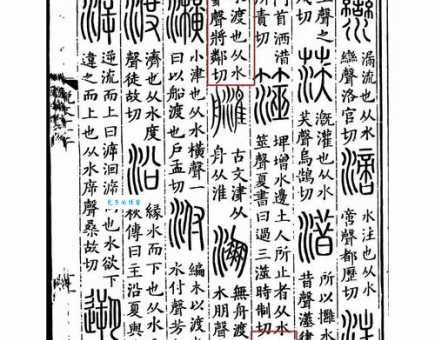 漏流也从水
䜌聲洛官切
滴
水注也从水
啻聲都歷切
聲之
切
溉灌也从水
芺聲烏鵠切
所以攤水
昔聲漢律
門首洒浩
所責切
澨
埤增水邊土人所止者从水
筮聲夏書曰過三澨時制切
渡也从水
聲將鄰切
古文津从
舟从淮
淜
無舟渡
水朋聲
小津也从水橫聲一
曰以船渡也戶孟切
泭
編木以渡
水付聲芳
渡
濟也从水度
聲徒故切
沿
緣水而下也从水
秋傳曰王沿夏
逆流而上曰㴑洄也水欲下
違之而上也从水㡿聲桑故切